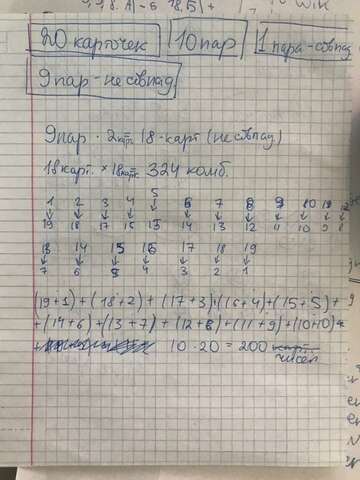 20 карточек 10 пар 1 пара-совпад
9 пар-не совпад
9 пар · 2карт. 18-карт (не совпад.)
18 карт. × 18карт. 324 комб.
1 2 3 4 5 6 7 8 9 10 11 12
19 18 17 16 15 14 13 12 11 10 9 8
13 14 15 16 17 18 19
7 6 5 4 3 2 1
(19+1)+(18+2)+(17+3)+(16+4)+(15+5)+
+(14+6)+(13+7)+(12+8)+(11+9)+(10+10)=
10·20=200 чисел